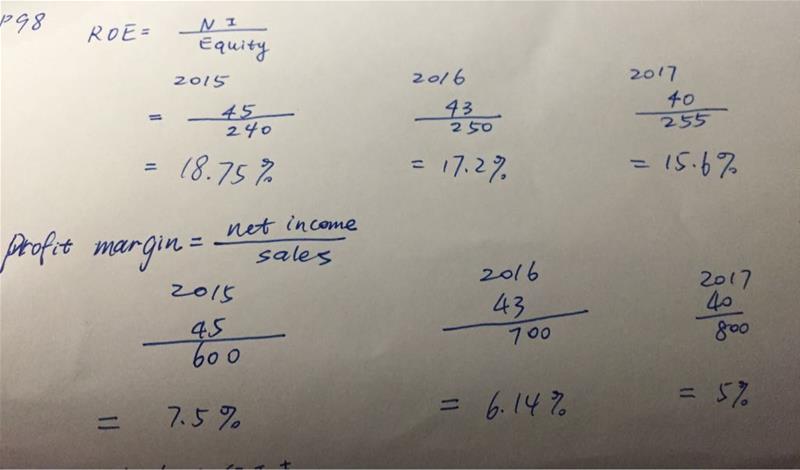 P98 ROE = NI
Equity
2015 2016 2017
= 45 43 40
240 250 255
= 18.75% = 17.2% = 15.6%
Profit margin = net income
sales
2015 2016 2017
45 43 40
600 700 800
= 7.5% = 6.14% = 5%